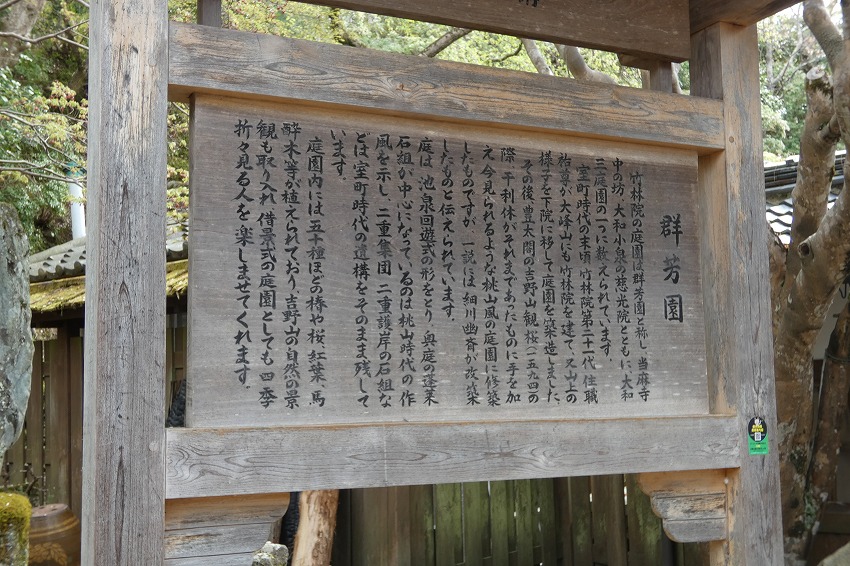 群芳園
竹林院の庭園は群芳園と称し、当麻寺
中の坊、大和小泉の慈光院とともに、大和
三庭園の一つに数えられています。
室町時代の末頃、竹林院第二十一代住職
祐尊が大峰山にも竹林院を建て、又山上の
様子を下院に移して庭園を築造しました。
その後、豊太閤の吉野山観桜(一五九四)の
際、千利休がそれまであったものに手を加
え今見られるような桃山風の庭園に修築
したものですが、一説には細川幽斎が改築
したものと伝えられています。
庭は、池泉回遊式の形をとり、奥庭の蓬莱
石組が中心になっているのは桃山時代の作
風を示し、二重集団、二重護岸の石組な
どは室町時代の遺構をそのまま残して
います。
庭園内には五十種ほどの椿や桜、紅葉、馬
酔木等が植えられており、吉野山の自然の景
観も取り入れ、借景式の庭園としても四季
折々見る人を楽しませてくれます。